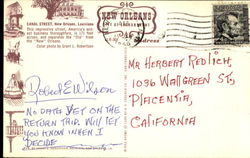 CANAL STREET, New Orleans, Louisiana
This impressive street, America's widest business thoroughfare, is 171 feet across, and separates the "Old" from the "New" Orleans.
Color photo by Grant L. Robertson
NEW ORLEANS
Address
Robert E Wilson
NO DATE YET ON THE
RETURN TRIP. WILL LET
YOU KNOW WHEN I
DECIDE
MR HERBERT REDLICH,
1036 WALLGREEN ST,
PLACENTIA,
CALIFORNIA